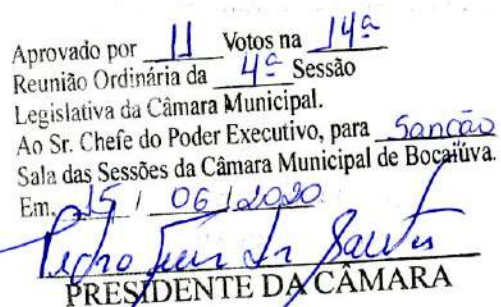 Aprovado por 11 Votos na 14ª
Reunião Ordinária da 4ª Sessão
Legislativa da Câmara Municipal.
Ao Sr. Chefe do Poder Executivo, para Sanção
Sala das Sessões da Câmara Municipal de Bocaiúva.
Em, 15 / 06 / 2020
Pedro
PRESIDENTE DA CÂMARA